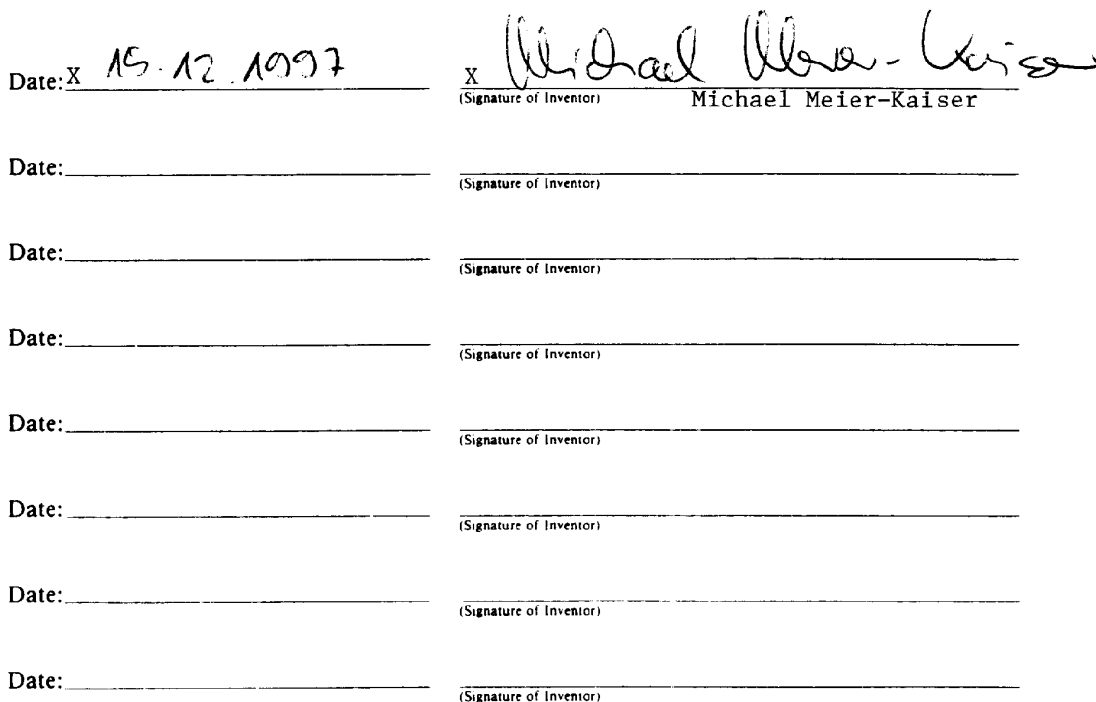 Date: X 15.12.1997 X Michael Meier-Kaiser
(Signature of Inventor) Michael Meier-Kaiser
Date:
(Signature of Inventor)
Date:
(Signature of Inventor)
Date:
(Signature of Inventor)
Date:
(Signature of Inventor)
Date:
(Signature of Inventor)
Date:
(Signature of Inventor)
Date:
(Signature of Inventor)